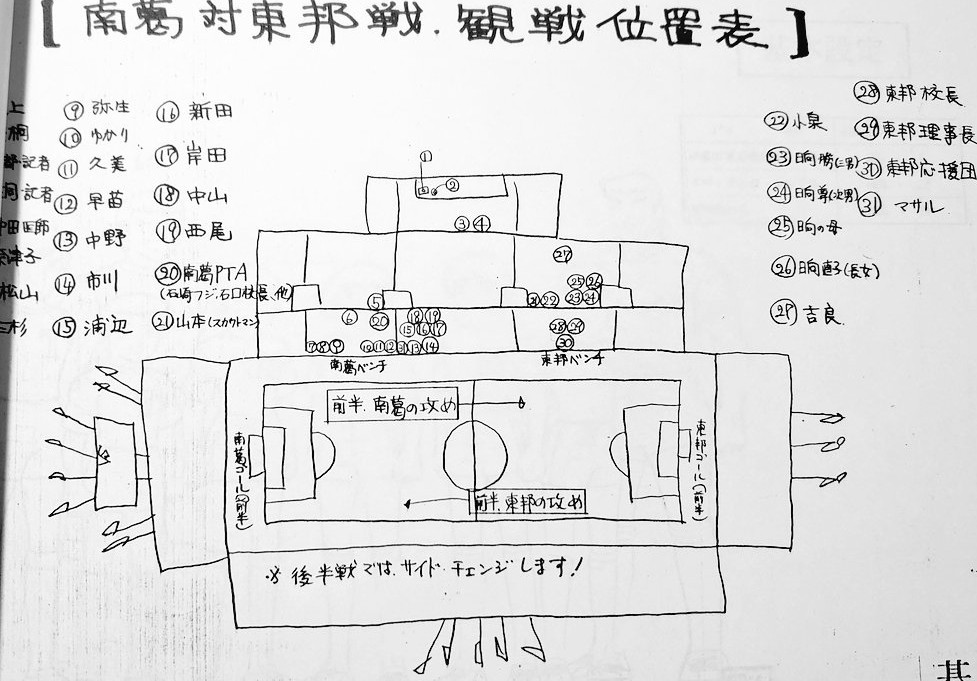 【南葛対東邦戦.観戦位置表】
上
桐
記者
記者
松山
三杉
⑨ 弥生
⑩ ゆかり
⑪ 久美
⑫ 早苗
⑬ 中野
⑭ 市川
⑮ 浦辺
⑯ 新田
⑰ 岸田
⑱ 中山
⑲ 西尾
⑳ 南葛PTA
(石崎フジ.石口校長、他)
㉑ 山本(スカウトマン)
㉒ 小泉
㉓ 日向 勝(三男)
㉔ 日向 尊(次男)
㉕ 日向の母
㉖ 日向直子(長女)
㉗ 吉良
㉘ 東邦校長
㉙ 東邦理事長
㉛ 東邦応援団
㉛ マサル
① ②
③ ④
㉗
㉕ ㉖
⑤ ㉛ ㉒ ㉓ ㉔
⑥ ⑳ ⑱ ⑲
⑮ ⑯ ⑰ ㉘ ㉙
⑦ ⑧ ⑨ ⑩ ⑪ ⑫ ㉛ ⑬ ⑭ ㉚
南葛ベンチ 東邦ベンチ
前半.南葛の攻め
南葛ゴール(前半)
東邦ゴール(前半)
前半.東邦の攻め
※ 後半戦では、サイド・チェンジします!
其